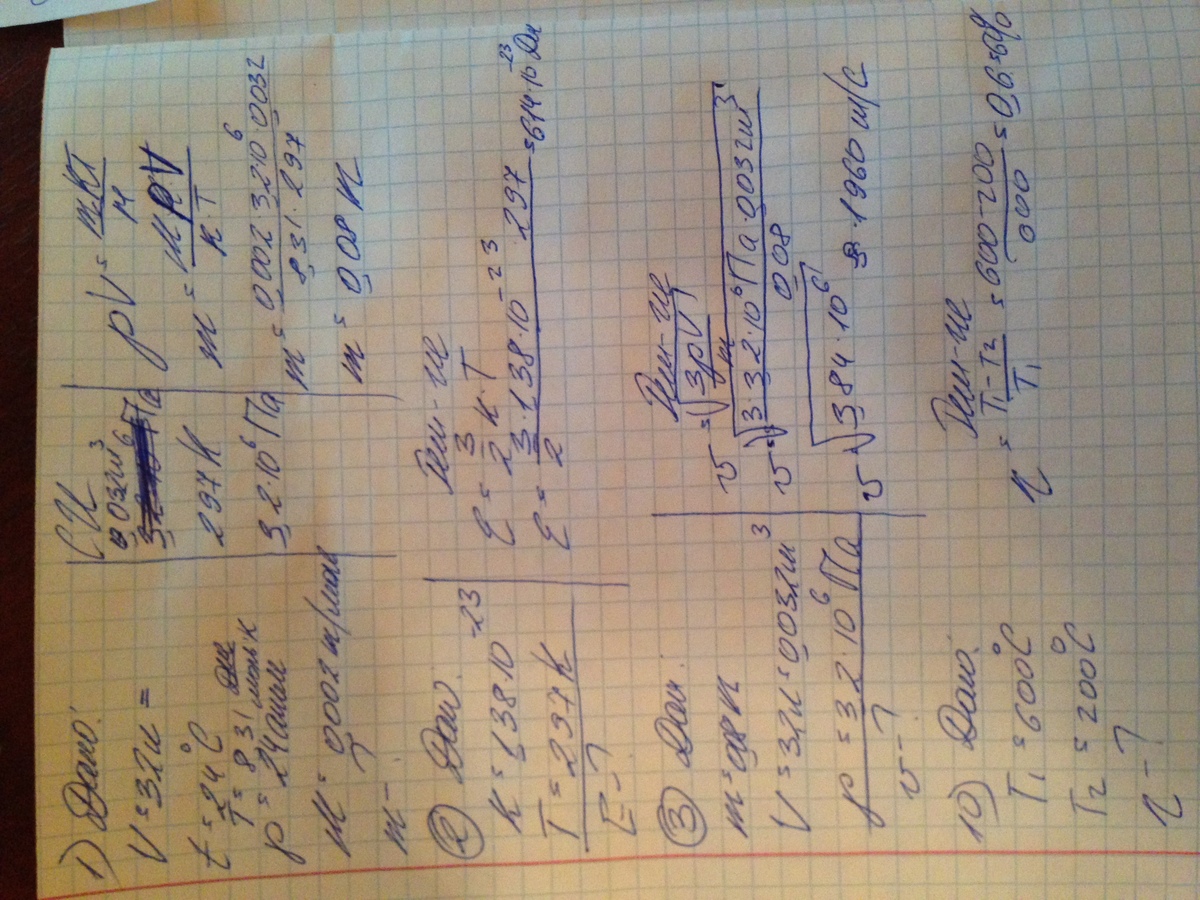 1) Дано:
V = 32л =
t = 24°C
p = 24 атм
M = 0,002 кг/моль
m - ?
СИ
0,032м³
297К
3,2·10⁶Па
pV = mRT/M
m = M·p·V/R·T
m = 0,002·3,2·10⁶·0,032/8,31·297
m = 0,08 кг
2) Дано:
K = 1,38·10⁻²³
T = 297К
E - ?
Реш-ие
E = 3/2 K·T
E = 3·1,38·10⁻²³·297/2 = 614·10⁻²³ Дж
3) Дано:
m = 0,08кг
V = 32л = 0,032м³
p = 3,2·10⁶Па
v - ?
Реш-ие
v = √3pV/m
v = √3·3,2·10⁶Па·0,032м³/0,08
v = √3,84·10⁶ ≈ 1960 м/с
10) Дано:
T₁ = 600°C
T₂ = 200°C
η - ?
Реш-ие
η = T₁-T₂/T₁ = 600-200/600 =